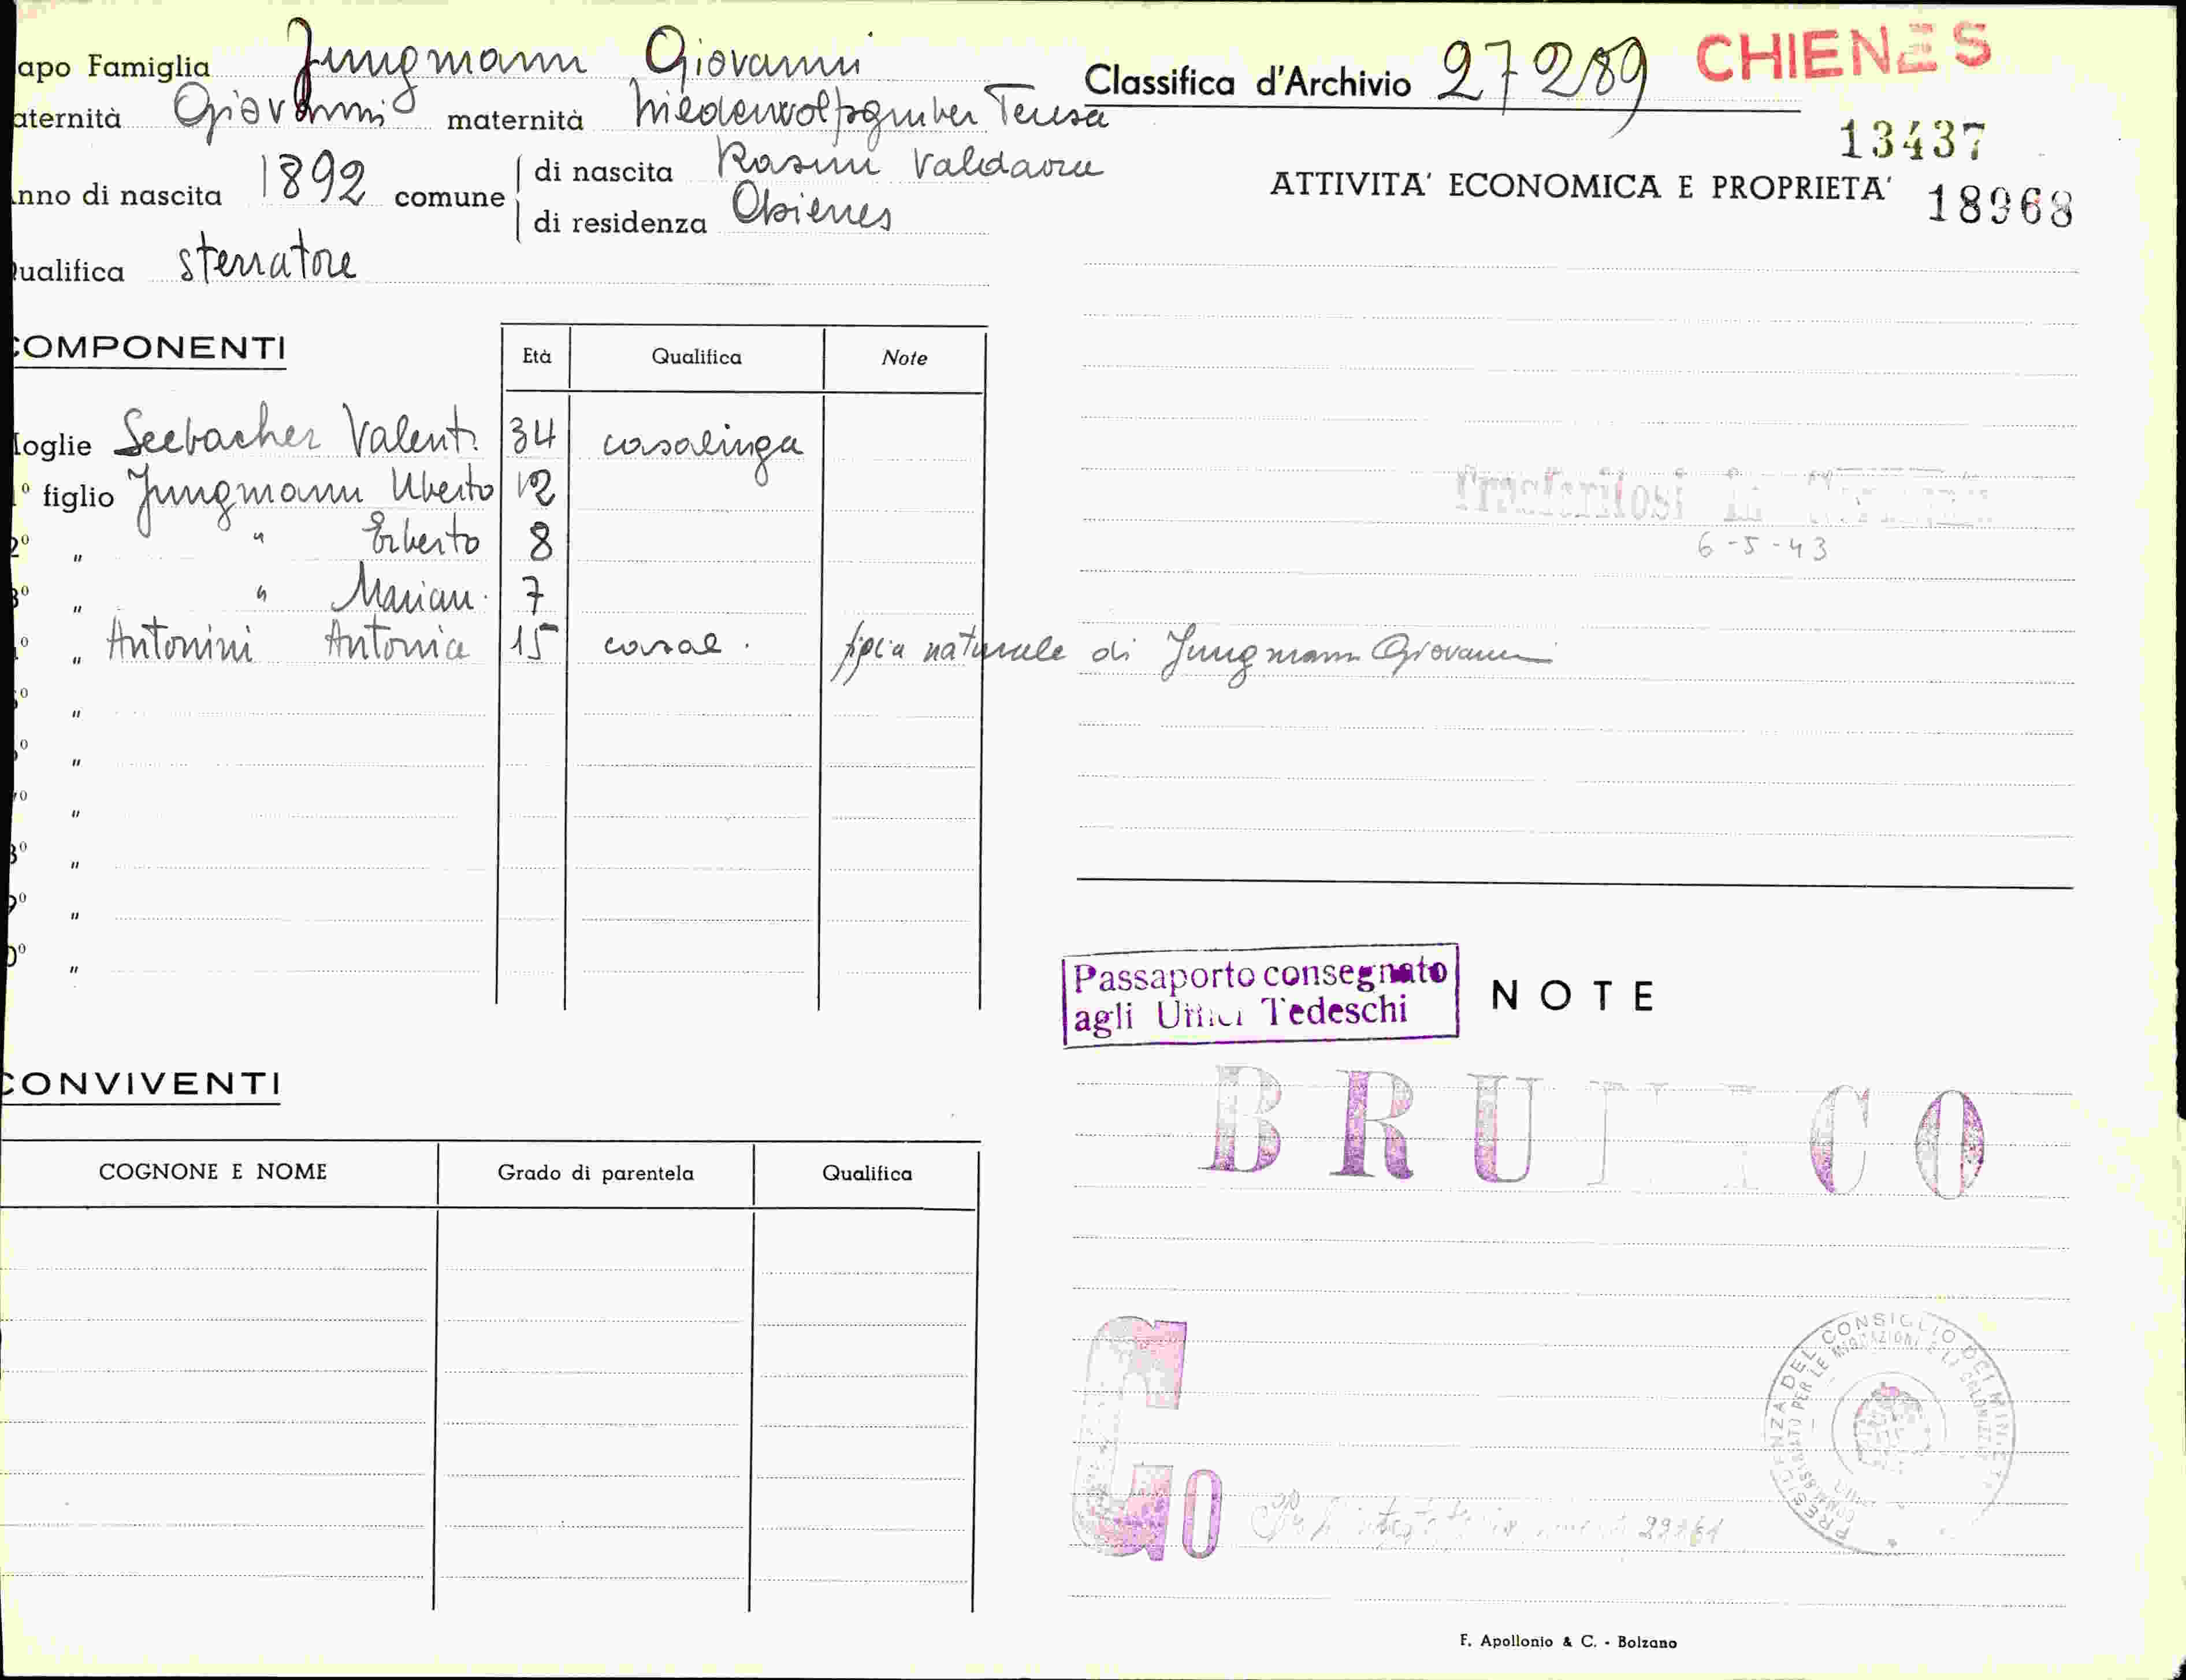 apo Famiglia Jungmann Giovanni
aternità Giovanni maternità Niederwolfsgruber Teresa
nno di nascita 1892 comune di nascita Rasun Valdaora
di residenza Chienes
ualifica sterratore
COMPONENTI
Età Qualifica Note
oglie Seebacher Valent. 34 casalinga
º figlio Jungmann Uberto 12
2º " " Erberto 8
3º " " Marian. 7
º " Antonini Antonia 15 casal. figlia naturale di Jungmann Giovanni
º "
º "
º "
8º "
9º "
0º "
CONVIVENTI
COGNONE E NOME Grado di parentela Qualifica
Classifica d'Archivio 27289 CHIENES
13437
ATTIVITA' ECONOMICA E PROPRIETA' 18968
Trasferitosi in
6-5-43
Passaporto consegnato
agli Uffici Tedeschi
NOTE
BRUNICO
G O
PRESIDENZA DEL CONSIGLIO DEI MINISTRI
COMMISSARIATO PER LE MIGRAZIONI E LA COLONIZZ
F. Apollonio & C. - Bolzano